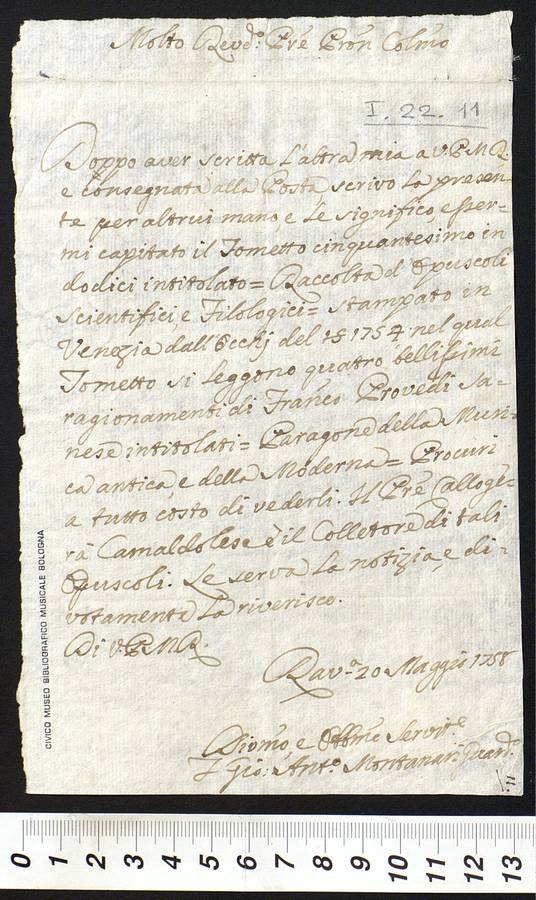 Molto Revdo: Prẽ Pron Colmo
I. 22. 11
Doppo aver scritta l'altra mia a V.P.M.R.
e consegnata alla Posta, scrivo la presen-
te per altrui mano, e le significo, esser-
mi capitato il Tometto cinquantesimo in
dodici intitolato= Raccolta d'Opuscoli
scientifici, e Filologici= stampato in
Venezia dall'Occhj del 1754 nel qual
Tometto si leggono quatro bellissimi
ragionamenti di Franco Provedi Sa-
nese intitolati= Paragone della Musi-
ca antica, e della Moderna= Procuri
a tutto costo di vederli. Il Prẽ Calloge-
rà Camaldolese è il Colletore di tali
Opuscoli. Le serva la notizia, e di-
votamente la riverisco.
Di V.P.M.R.
Rava 20 Maggio 1758
Divmo, e Obbmo Servite
F Gio: Anto. Montanari Guardo
11
CIVICO MUSEO BIBLIOGRAFICO MUSICALE BOLOGNA
0 1 2 3 4 5 6 7 8 9 10 11 12 13